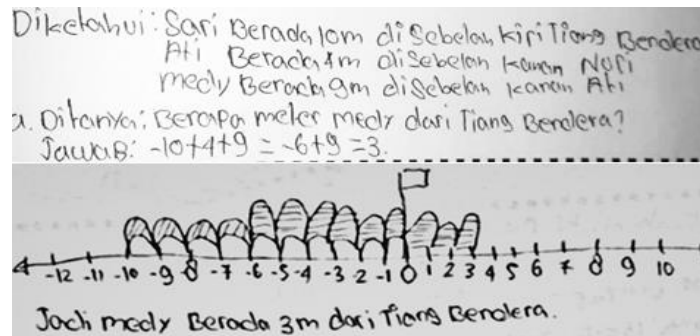 Diketahui: Sari Berada 10m disebelah kiri Tiang Bendera
Ati Berada 4m disebelah kanan Nuri
medy Berada 9m disebelah kanan Ati
a. Ditanya: Berapa meter medy dari Tiang Bendera?
Jawab: -10+4+9 = -6+9 = 3.
-12 -11 -10 -9 -8 -7 -6 -5 -4 -3 -2 -1 0 1 2 3 4 5 6 7 8 9 10
Jadi medy Berada 3m dari Tiang Bendera.